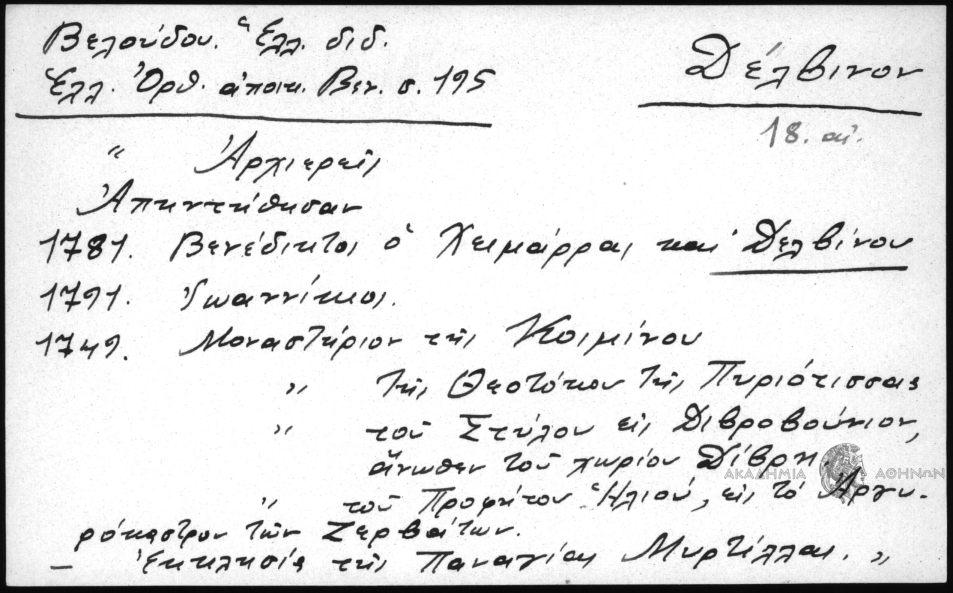 Βελούδου. Ἑλλ. διδ.
Ἑλλ. Ὀρθ. ἀποικ. Βεν. σ. 195
Δέλβινον
18. αἰ.
" Ἀρχιερεῖς
Ἀπηντήθησαν
1781. Βενέδικτος ὁ Χειμάρρας καὶ Δελβίνου
1791. Ἰωαννίκιος.
1749. Μοναστήριον τῆς Κοιμίνου
" τῆς Θεοτόκου τῆς Πυριότισσας
" τοῦ Στύλου εἰς Διβροβούνιον,
ἄνωθεν τοῦ χωρίου Δίβρη
ΑΚΑΔΗΜΙΑ ΑΘΗΝΩΝ
" τοῦ Προφήτου Ἠλιού, εἰς τὸ Ἀργυ-
ρόκαστρον τῶν Ζερβάτων.
— Ἐκκλησία τῆς Παναγίας Μυρτίλλας. "